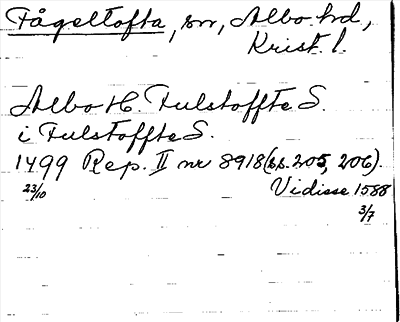 Fågeltofta, sn, Albo hd,
Krist. l.
Albo H. Fulstoffte S.
i Fulstoffte S.
1499 Rep. II nr 8918 (s.s. 205, 206).
23/10 Vidisse 1588
3/7